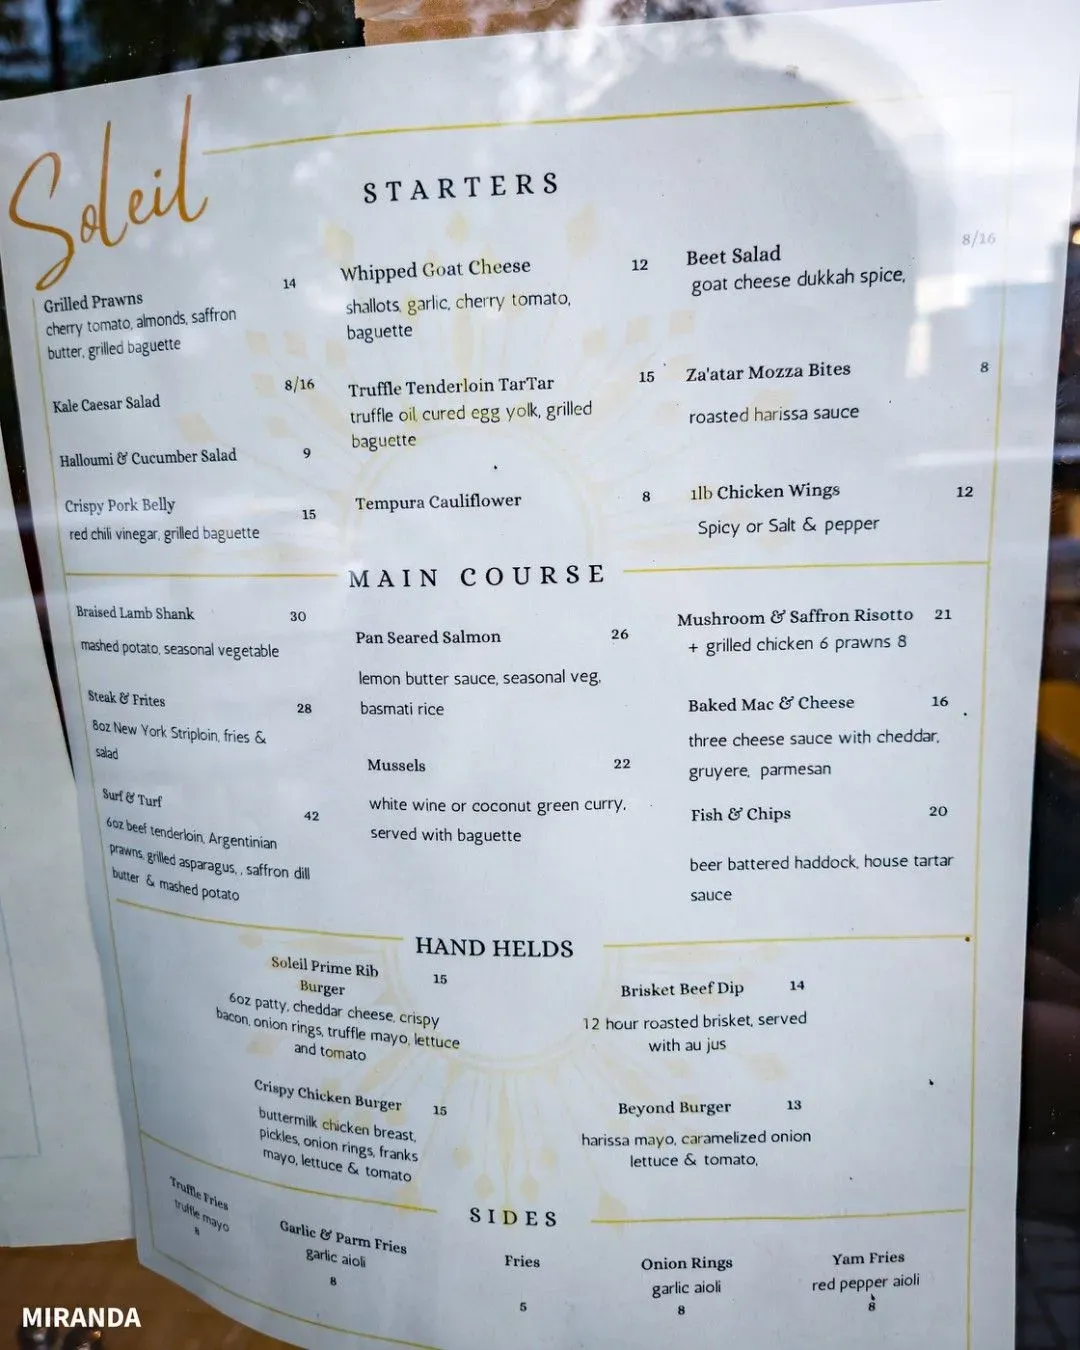 Soleil
STARTERS
Grilled Prawns 14
cherry tomato, almonds, saffron
butter, grilled baguette
Kale Caesar Salad 8/16
Halloumi & Cucumber Salad 9
Crispy Pork Belly 15
red chili vinegar, grilled baguette
Whipped Goat Cheese 12
shallots, garlic, cherry tomato,
baguette
Truffle Tenderloin TarTar 15
truffle oil cured egg yolk, grilled
baguette
Tempura Cauliflower 8
Beet Salad 8/16
goat cheese dukkah spice,
Za'atar Mozza Bites 8
roasted harissa sauce
1lb Chicken Wings 12
Spicy or Salt & pepper
MAIN COURSE
Braised Lamb Shank 30
mashed potato, seasonal vegetable
Steak & Frites 28
8oz New York Striploin, fries &
salad
Surf & Turf 42
6oz beef tenderloin, Argentinian
prawns, grilled asparagus, , saffron dill
butter & mashed potato
Pan Seared Salmon 26
lemon butter sauce, seasonal veg,
basmati rice
Mussels 22
white wine or coconut green curry,
served with baguette
Mushroom & Saffron Risotto 21
+ grilled chicken 6 prawns 8
Baked Mac & Cheese 16
three cheese sauce with cheddar,
gruyere, parmesan
Fish & Chips 20
beer battered haddock, house tartar
sauce
HAND HELDS
Soleil Prime Rib
Burger 15
6oz patty, cheddar cheese, crispy
bacon, onion rings, truffle mayo, lettuce
and tomato
Crispy Chicken Burger 15
buttermilk chicken breast,
pickles, onion rings, franks
mayo, lettuce & tomato
Brisket Beef Dip 14
12 hour roasted brisket, served
with au jus
Beyond Burger 13
harissa mayo, caramelized onion
lettuce & tomato,
SIDES
Truffle Fries
truffle mayo
8
Garlic & Parm Fries
garlic aioli
8
Fries
5
Onion Rings
garlic aioli
8
Yam Fries
red pepper aioli
8
MIRANDA